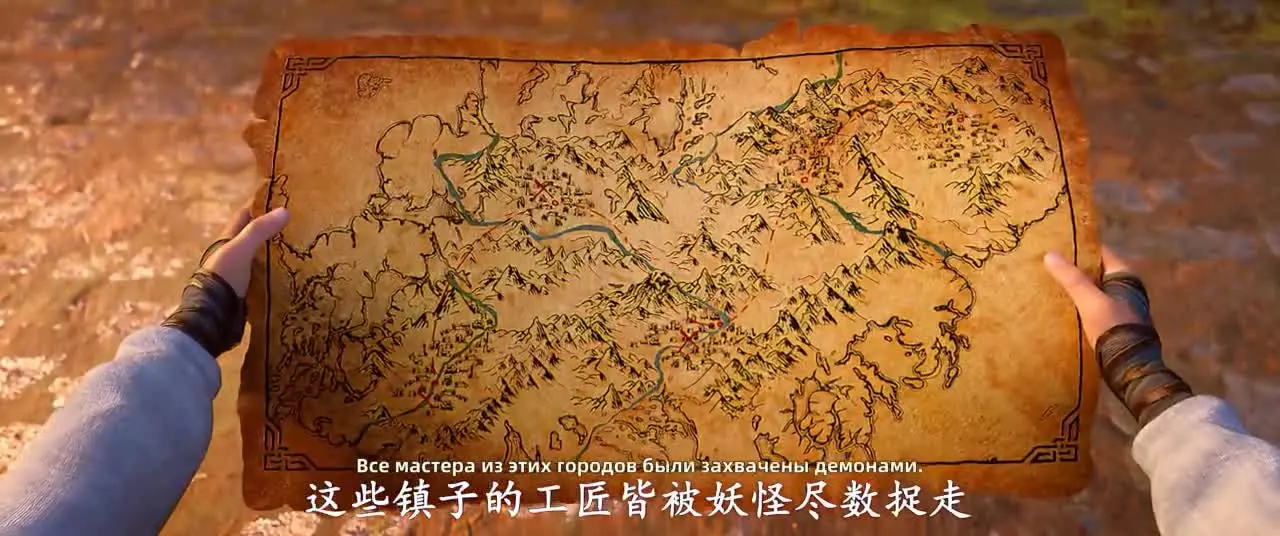 Все мастера из этих городов были захвачены демонами.
这些镇子的工匠皆被妖怪尽数捉走